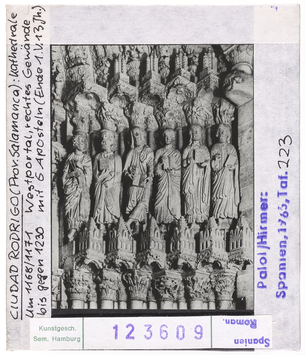 CIUDAD RODRIGO (Prov. Salamanca): Kathedrale
Um 1168/1171 Westportal, rechtes Gewände
bis gegen 1230 mit 6 Aposteln (Ende 1.V. 13. Jh.)
Palol/Hirmer:
Spanien, 1965, Taf. 223
Kunstgesch.
Sem. Hamburg
123609
Spanien
Roman.